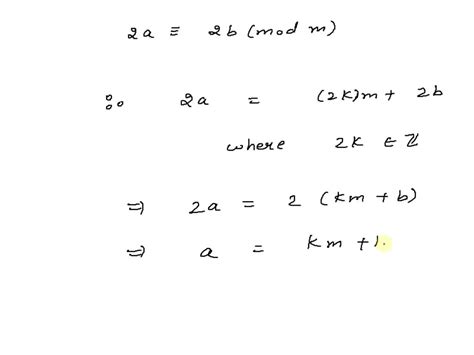 2a ≡ 2b (mod m)
∴ 2a = (2k)m + 2b
where 2k ∈ ℤ
⇒ 2a = 2 (km + b)
⇒ a = km +